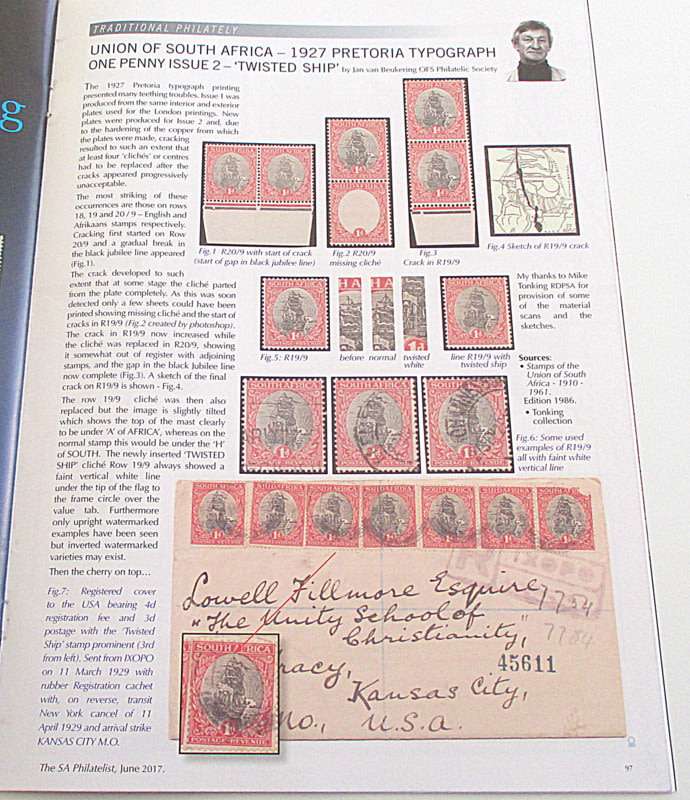 TRADITIONAL PHILATELY
UNION OF SOUTH AFRICA – 1927 PRETORIA TYPOGRAPH
ONE PENNY ISSUE 2 – 'TWISTED SHIP' by Jan van Beukering OFS Philatelic Society
The 1927 Pretoria typograph printing
presented many teething troubles. Issue 1 was
produced from the same interior and exterior
plates used for the London printings. New
plates were produced for Issue 2 and, due
to the hardening of the copper from which
the plates were made, cracking
resulted to such an extent that
at least four 'clichés' or centres
had to be replaced after the
cracks appeared progressively
unacceptable.
The most striking of these
occurrences are those on rows
18, 19 and 20 / 9 – English and
Afrikaans stamps respectively.
Cracking first started on Row
20/9 and a gradual break in
the black jubilee line appeared
(Fig.1).
The crack developed to such
extent that at some stage the cliché parted
from the plate completely. As this was soon
detected only a few sheets could have been
printed showing missing cliché and the start of
cracks in R19/9 (Fig.2 created by photoshop).
The crack in R19/9 now increased while
the cliché was replaced in R20/9, showing
it somewhat out of register with adjoining
stamps, and the gap in the black Jubilee line
now complete (Fig.3). A sketch of the final
crack on R19/9 is shown - Fig.4.
The row 19/9 cliché was then also
replaced but the image is slightly tilted
which shows the top of the mast clearly
to be under 'A' of AFRICA', whereas on the
normal stamp this would be under the 'H'
of SOUTH. The newly inserted 'TWISTED
SHIP' cliché Row 19/9 always showed a
faint vertical white line
under the tip of the flag to
the frame circle over the
value tab. Furthermore
only upright watermarked
examples have been seen
but inverted watermarked
varieties may exist.
Then the cherry on top…
Fig.7: Registered cover
to the USA bearing 4d
registration fee and 3d
postage with the 'Twisted
Ship' stamp prominent (3rd
from left). Sent from IXOPO
on 11 March 1929 with
rubber Registration cachet
with, on reverse, transit
New York cancel of 11
April 1929 and arrival strike
KANSAS CITY M.O.
Fig.1 R20/9 with start of crack
(start of gap in black jubilee line)
Fig.2 R20/9
missing cliché
Fig.3
Crack in R19/9
Fig.4 Sketch of R19/9 crack
Fig.5: R19/9
before normal twisted
white
line R19/9 with
twisted ship
My thanks to Mike
Tonking RDPSA for
provision of some
of the material
scans and the
sketches.
Sources:
• Stamps of the
Union of South
Africa - 1910 -
1961.
Edition 1986.
• Tonking
collection
Fig.6: Some used
examples of R19/9
all with faint white
vertical line
SOUTH AFRICA
1D
POSTAGE-REVENUE
IXOPO
Lowell Fillmore Esquire,
7754
"The Unity School of
Christianity,
7784
racy,
45611
Kansas City,
Mo., U.S.A.
The SA Philatelist, June 2017.
97